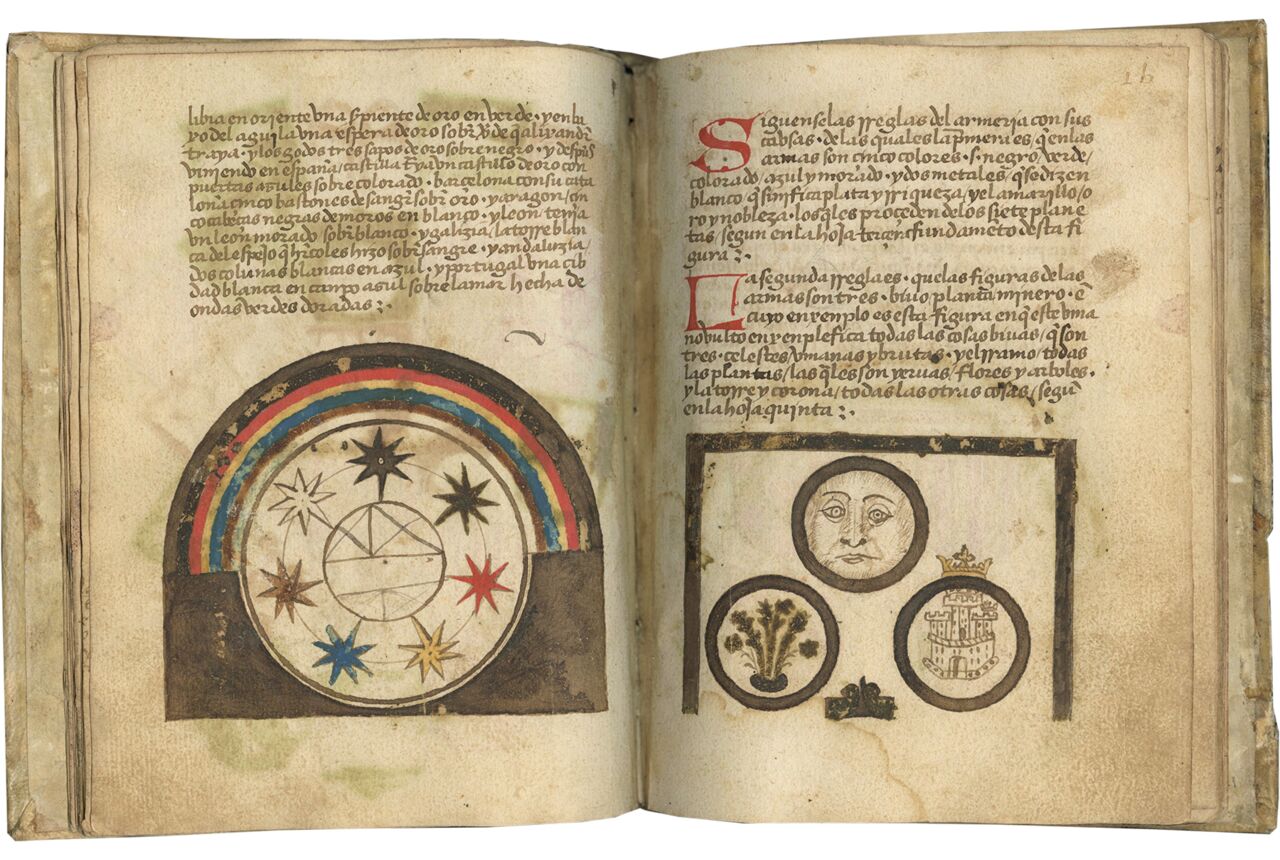 libia en oriente vna spiente de oro en verde · y en bi
yo del aguila vna espera de oro sobr
traya · y los godos tres sapos de oro sobre negro · y despus
viniendo en españa / castilla traya vn castillo de oro con
puertas azules sobre colorado · barcelona con su cata
loña cinco bastones de sangre sobr oro · y aragon / cin
co cabeças negras de moros en blanco · y leon tenia
vn leon morado sobr blanco · y galizia / la torre blan
ca del espejo q hrcoles hizo sobr sangre · y andaluzia /
dos colunas blancas en azul · y portugal vna cib
dad blanca en canpo azul sobre la mar hecha de
ondas verdes doradas
16
Siguense las rreglas del armeria con sus
cabsas · de las quales la primera es / q en las
armas son cinco colores · s · negro / verde /
colorado / azul y morado · y dos metales / q se dizen
blanco q sinifica plata y rriqueza / y el amarillo / o
ro y nobleza · los qles proceden de los siete plane
tas / segun en la hoja tercera fundameto desta fi
gura
La segunda rregla es · que las figuras de las
armas son tres · biuo planta minero · e
cuyo enxenplo es esta figura en q este vma
no bulto enxenplefica todas las cosas biuas / q son
tres · celestes / vmanas y brutas · y el rramo / todas
las plantas / las qles son yeruas / flores y arboles ·
y la torre y corona / todas las otras cosas / segu
en la hoja quinta